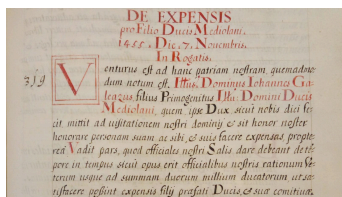 DE EXPENSIS
pro Filio Ducis Mediolani.
1455. Die. 7. Novembris.
In Rogatis.
319
Venturus est ad hanc patriam nostram, quemadmo
dum notum est, Illus. Dominus Iohannes Ga-
leazus, filius Primogenitus Illu: Domini Ducis
Mediolani, quem ipse Dux, sicut nobis dici fe-
cit mittit ad visitationem nostri dominij & sit honor noster
honorare personam suam, ac sibi, & suis facere expensas, propte-
rea Vadit pars, quod officiales nostri Salis, dare debeant de té-
pore in tempus sicut opus erit officialibus nostris rationum Ve-
terum usque ad summam ducatorum millium ducatorum, ut sa-
tisfacere possint expensis filij præfati Ducis, & suæ comitivæ,